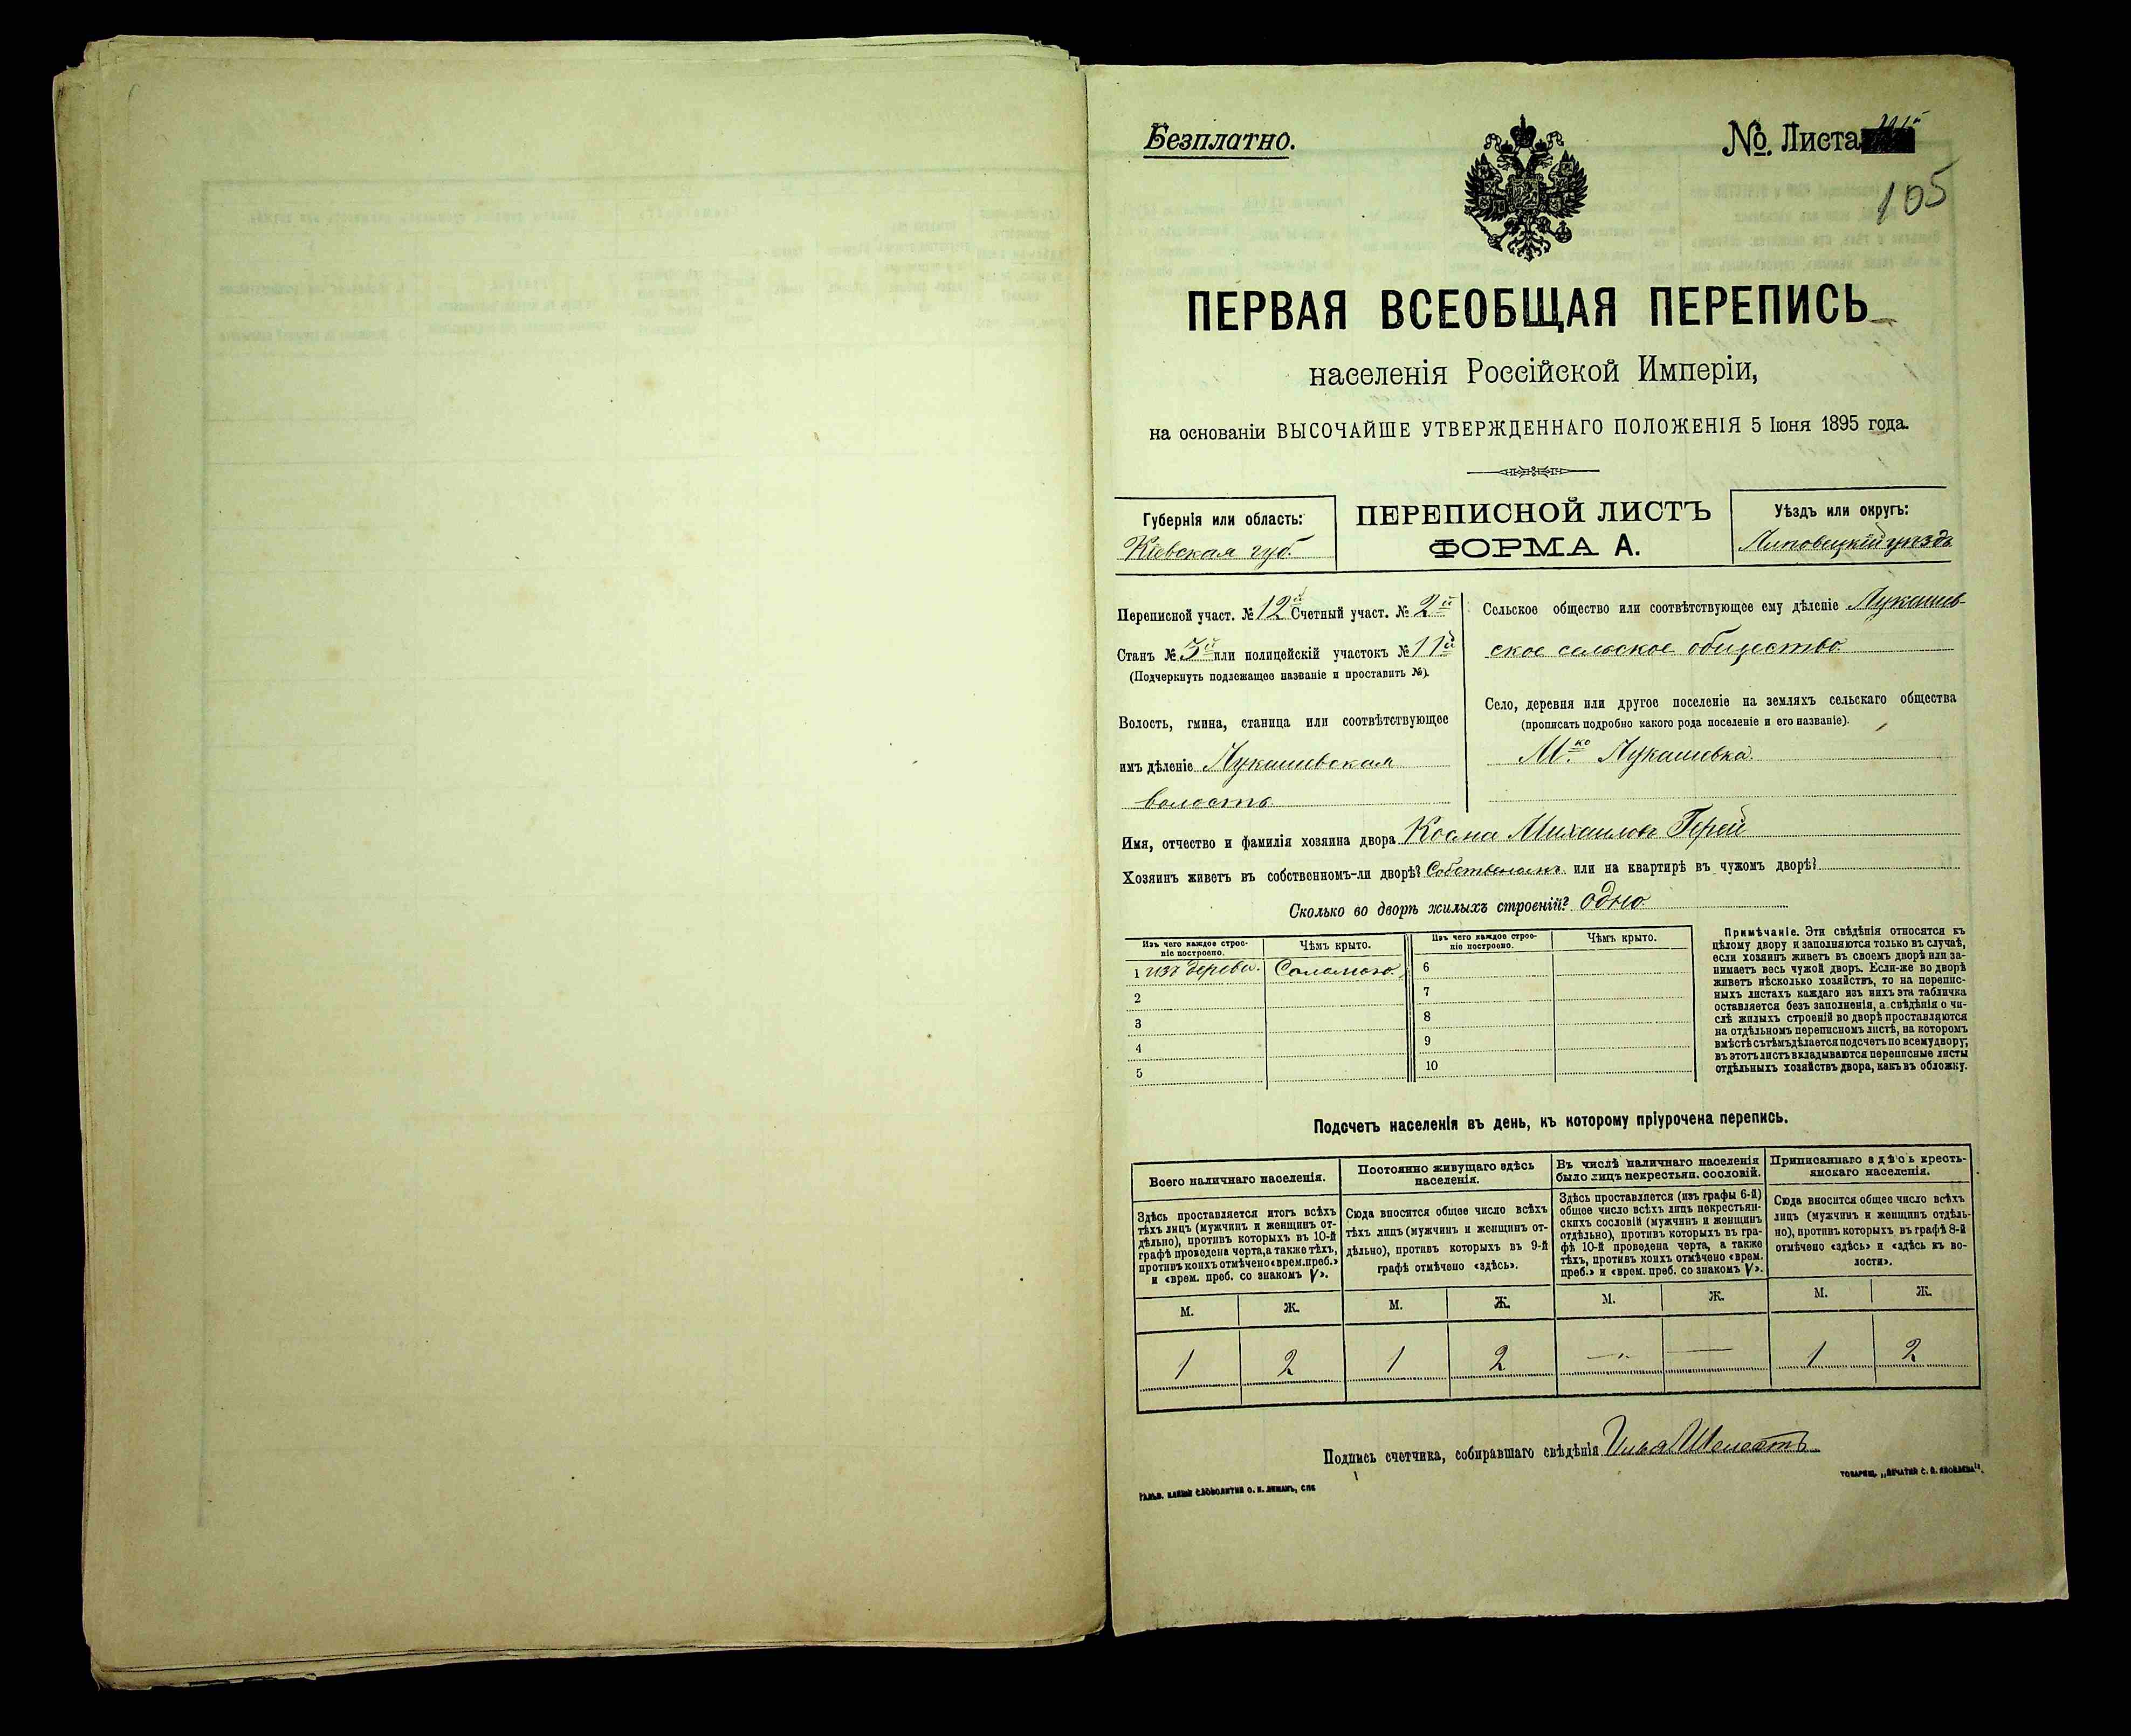 Безплатно.
№ Листа
105
ПЕРВАЯ ВСЕОБЩАЯ ПЕРЕПИСЬ
населенія Россійской Имперіи,
на основаніи ВЫСОЧАЙШЕ УТВЕРЖДЕННАГО ПОЛОЖЕНІЯ 5 Іюня 1895 года.
Губернія или область:
Кіевская губ.
ПЕРЕПИСНОЙ ЛИСТЪ
ФОРМА А.
Уѣздъ или округъ:
Липовецкій уѣздъ
Переписной участ. № 12й Счетный участ. № 2й
Станъ № 3й или полицейскій участокъ № 11й
(Подчеркнуть подлежащее названіе и проставить №).
Волость, гмина, станица или соотвѣтствующее
имъ дѣленіе Лукашевская
волость
Сельское общество или соотвѣтствующее ему дѣленіе Лукашев-
ское сельское общество.
Село, деревня или другое поселеніе на земляхъ сельскаго общества
(прописать подробно какого рода поселеніе и его названіе).
М.ко Лукашевка.
Имя, отчество и фамилія хозяина двора Косма Михаиловъ Герей
Хозяинъ живетъ въ собственномъ-ли дворѣ? Собственномъ или на квартирѣ въ чужомъ дворѣ?
Сколько во дворѣ жилыхъ строеній? одно.
Изъ чего каждое строе-
ніе построено.
Чѣмъ крыто.
Изъ чего каждое строе-
ніе построено.
Чѣмъ крыто.
1 изъ дерева. Соломою. 6
2 7
3 8
4 9
5 10
Примѣчаніе. Эти свѣдѣнія относятся къ
цѣлому двору и заполняются только въ случаѣ,
если хозяинъ живетъ въ своемъ дворѣ или за-
нимаетъ весь чужой дворъ. Если-же во дворѣ
живетъ нѣсколько хозяйствъ, то на перепис-
ныхъ листахъ каждаго изъ нихъ эта табличка
оставляется безъ заполненія, а свѣдѣнія о чи-
слѣ жилыхъ строеній во дворѣ проставляются
на отдѣльномъ переписномъ листѣ, на которомъ
вмѣстѣ съ тѣмъ дѣлается подсчетъ по всему двору;
въ этотъ листъ вкладываются переписные листы
отдѣльныхъ хозяйствъ двора, какъ въ обложку.
Подсчетъ населенія въ день, къ которому пріурочена перепись.
Всего наличнаго населенія.
Здѣсь проставляется итогъ всѣхъ
тѣхъ лицъ (мужчинъ и женщинъ от-
дѣльно), противъ которыхъ въ 10-й
графѣ проведена черта, а также тѣхъ,
противъ коихъ отмѣчено «врем. преб.»
и «врем. преб. со знакомъ V».
Постоянно живущаго здѣсь
населенія.
Сюда вносится общее число всѣхъ
тѣхъ лицъ (мужчинъ и женщинъ от-
дѣльно), противъ которыхъ въ 9-й
графѣ отмѣчено «здѣсь».
Въ числѣ наличнаго населенія
было лицъ некрестьян. сословій.
Здѣсь проставляется (изъ графы 6-й)
общее число всѣхъ лицъ некрестьян-
скихъ сословій (мужчинъ и женщинъ
отдѣльно), противъ которыхъ въ гра-
фѣ 10-й проведена черта, а также
тѣхъ, противъ коихъ отмѣчено «врем.
преб.» и «врем. преб. со знакомъ V».
Приписаннаго здѣсь кресть-
янскаго населенія.
Сюда вносится общее число всѣхъ
лицъ (мужчинъ и женщинъ отдѣль-
но), противъ которыхъ въ графѣ 8-й
отмѣчено «здѣсь» и «здѣсь къ во-
лости».
М. Ж. М. Ж. М. Ж. М. Ж.
1 2 1 2 — — 1 2
Подпись счетчика, собиравшаго свѣдѣнія Илья Шелестъ
ГАЛЬВ. КЛИШЕ СЛОВОЛИТНИ О. И. ЛЕМАНЪ, СПБ
ТОВАРИЩ. „ПЕЧАТНИ С. П. ЯКОВЛЕВА".